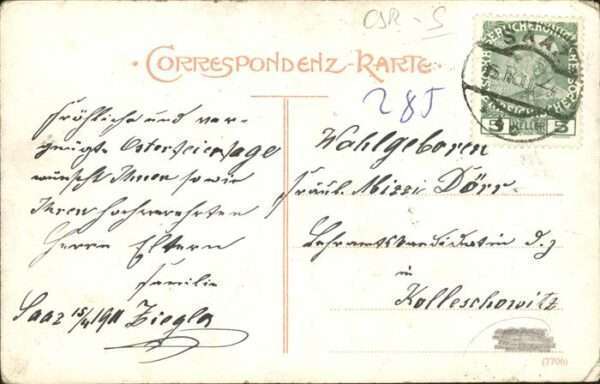 CSR - S
CORRESPONDENZ-KARTE.
285
SAAZ
5 HELLER 5
Fröhliche und ver-
gnügte Osterfeiertage
wünscht Ihnen sowie
Ihren hochverehrten
Herrn Eltern
Familie
Saaz 15/4 1911 Ziegler
Wohlgeboren
Fräul. Mizzi Dörr
Lehramtskandidatin d. z.
in
Kolleschowitz
(7706)